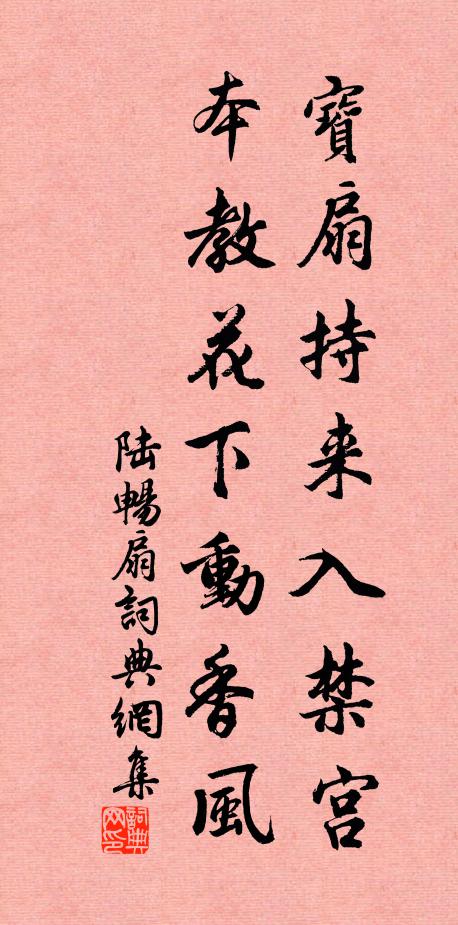 寶扇持来入禁宮
本教花下動香風
陆暢扇詞典網集
詞典网印